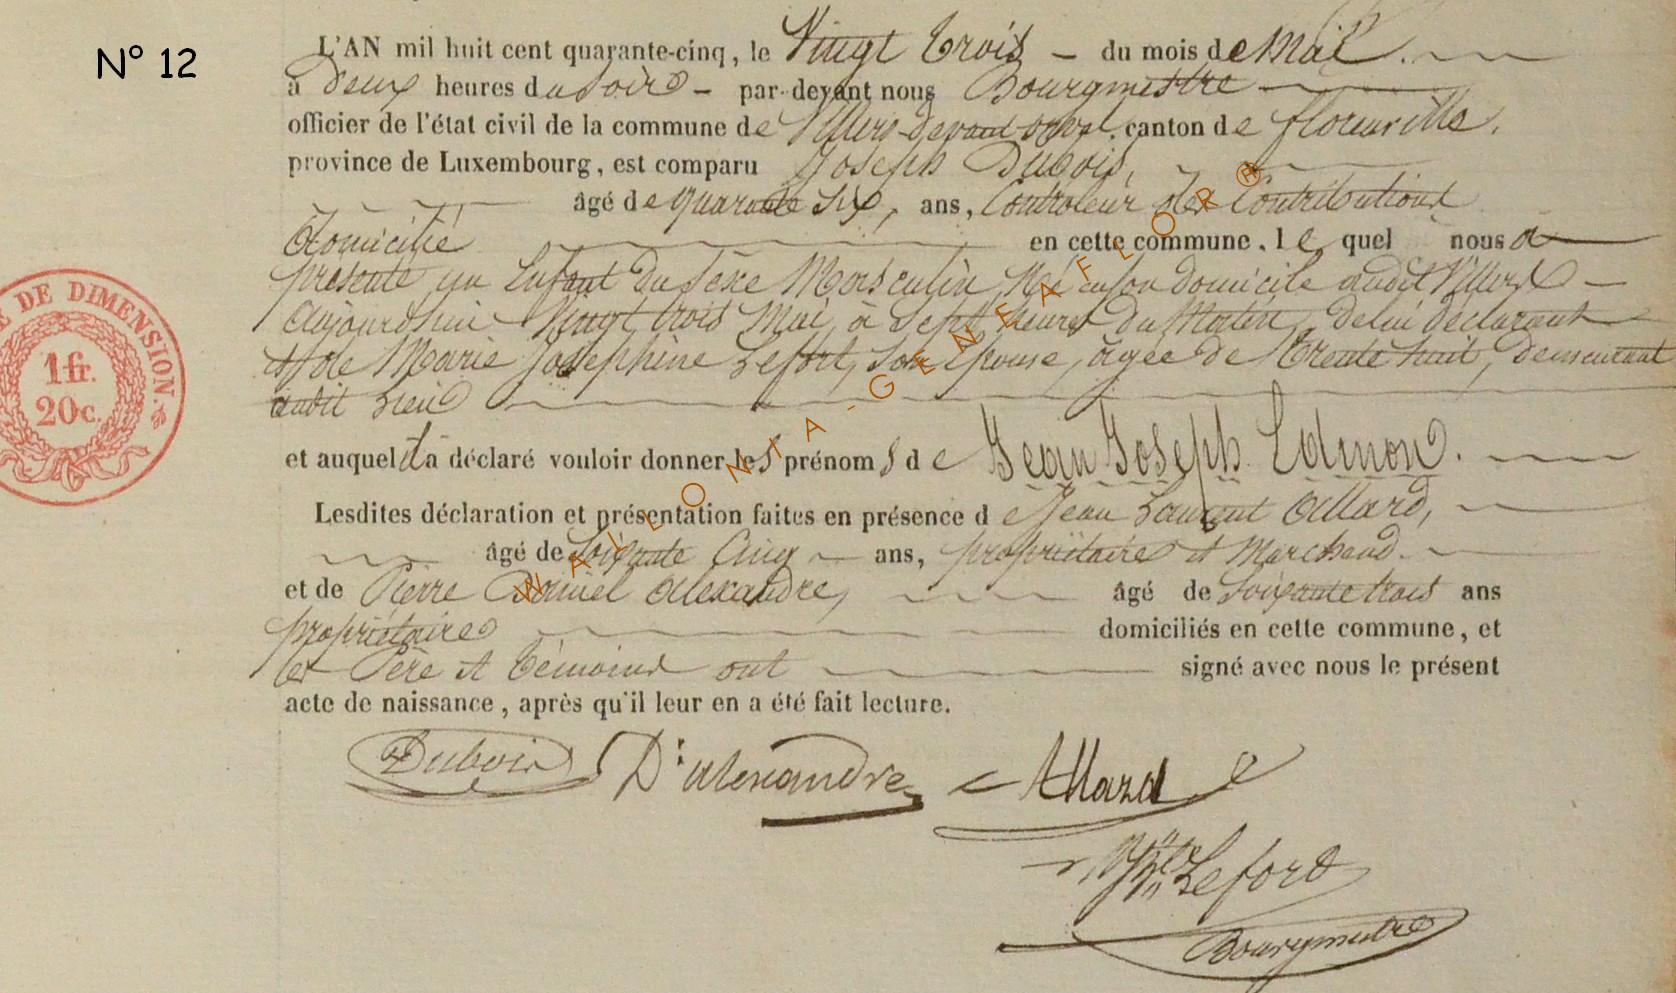 N° 12
L'AN mil huit cent quarante-cinq, le Vingt trois – du mois de Mai.
à deux heures du soir – par-devant nous Bourgmestre
officier de l'état civil de la commune de Villers-devant-orval, canton de florenville,
province de Luxembourg, est comparu Joseph Dubois,
âgé de quarante Six, ans, Controleur des Contributions
domicilié en cette commune, lequel nous a
présenté un Enfant du Sexe Masculin, Né en son domicile audit Villers –
aujourdhui Vingt trois Mai, à Sept heures du Matin, de lui déclarant
et de Marie Josephine Lefort, son Epouse, agée de Trente huit, demeurant
audit Lieu
et auquel il a déclaré vouloir donner les prénoms de Jean Joseph Edmond.
Lesdites déclaration et présentation faites en présence de Jean Laurent Allard,
âgé de Soixante Cinq – ans, propriétaire et Marchand.
et de Pierre Daniel Alexandre, âgé de Soixante trois ans
propriétaire domiciliés en cette commune, et
les Père et témoins ont signé avec nous le présent
acte de naissance, après qu'il leur en a été fait lecture.
Dubois Dl alexandre Allard
Lefort
Bourgmestre
DE DIMENSION.
1 fr.
20c.
WALLONIA-GENEAFLOR®